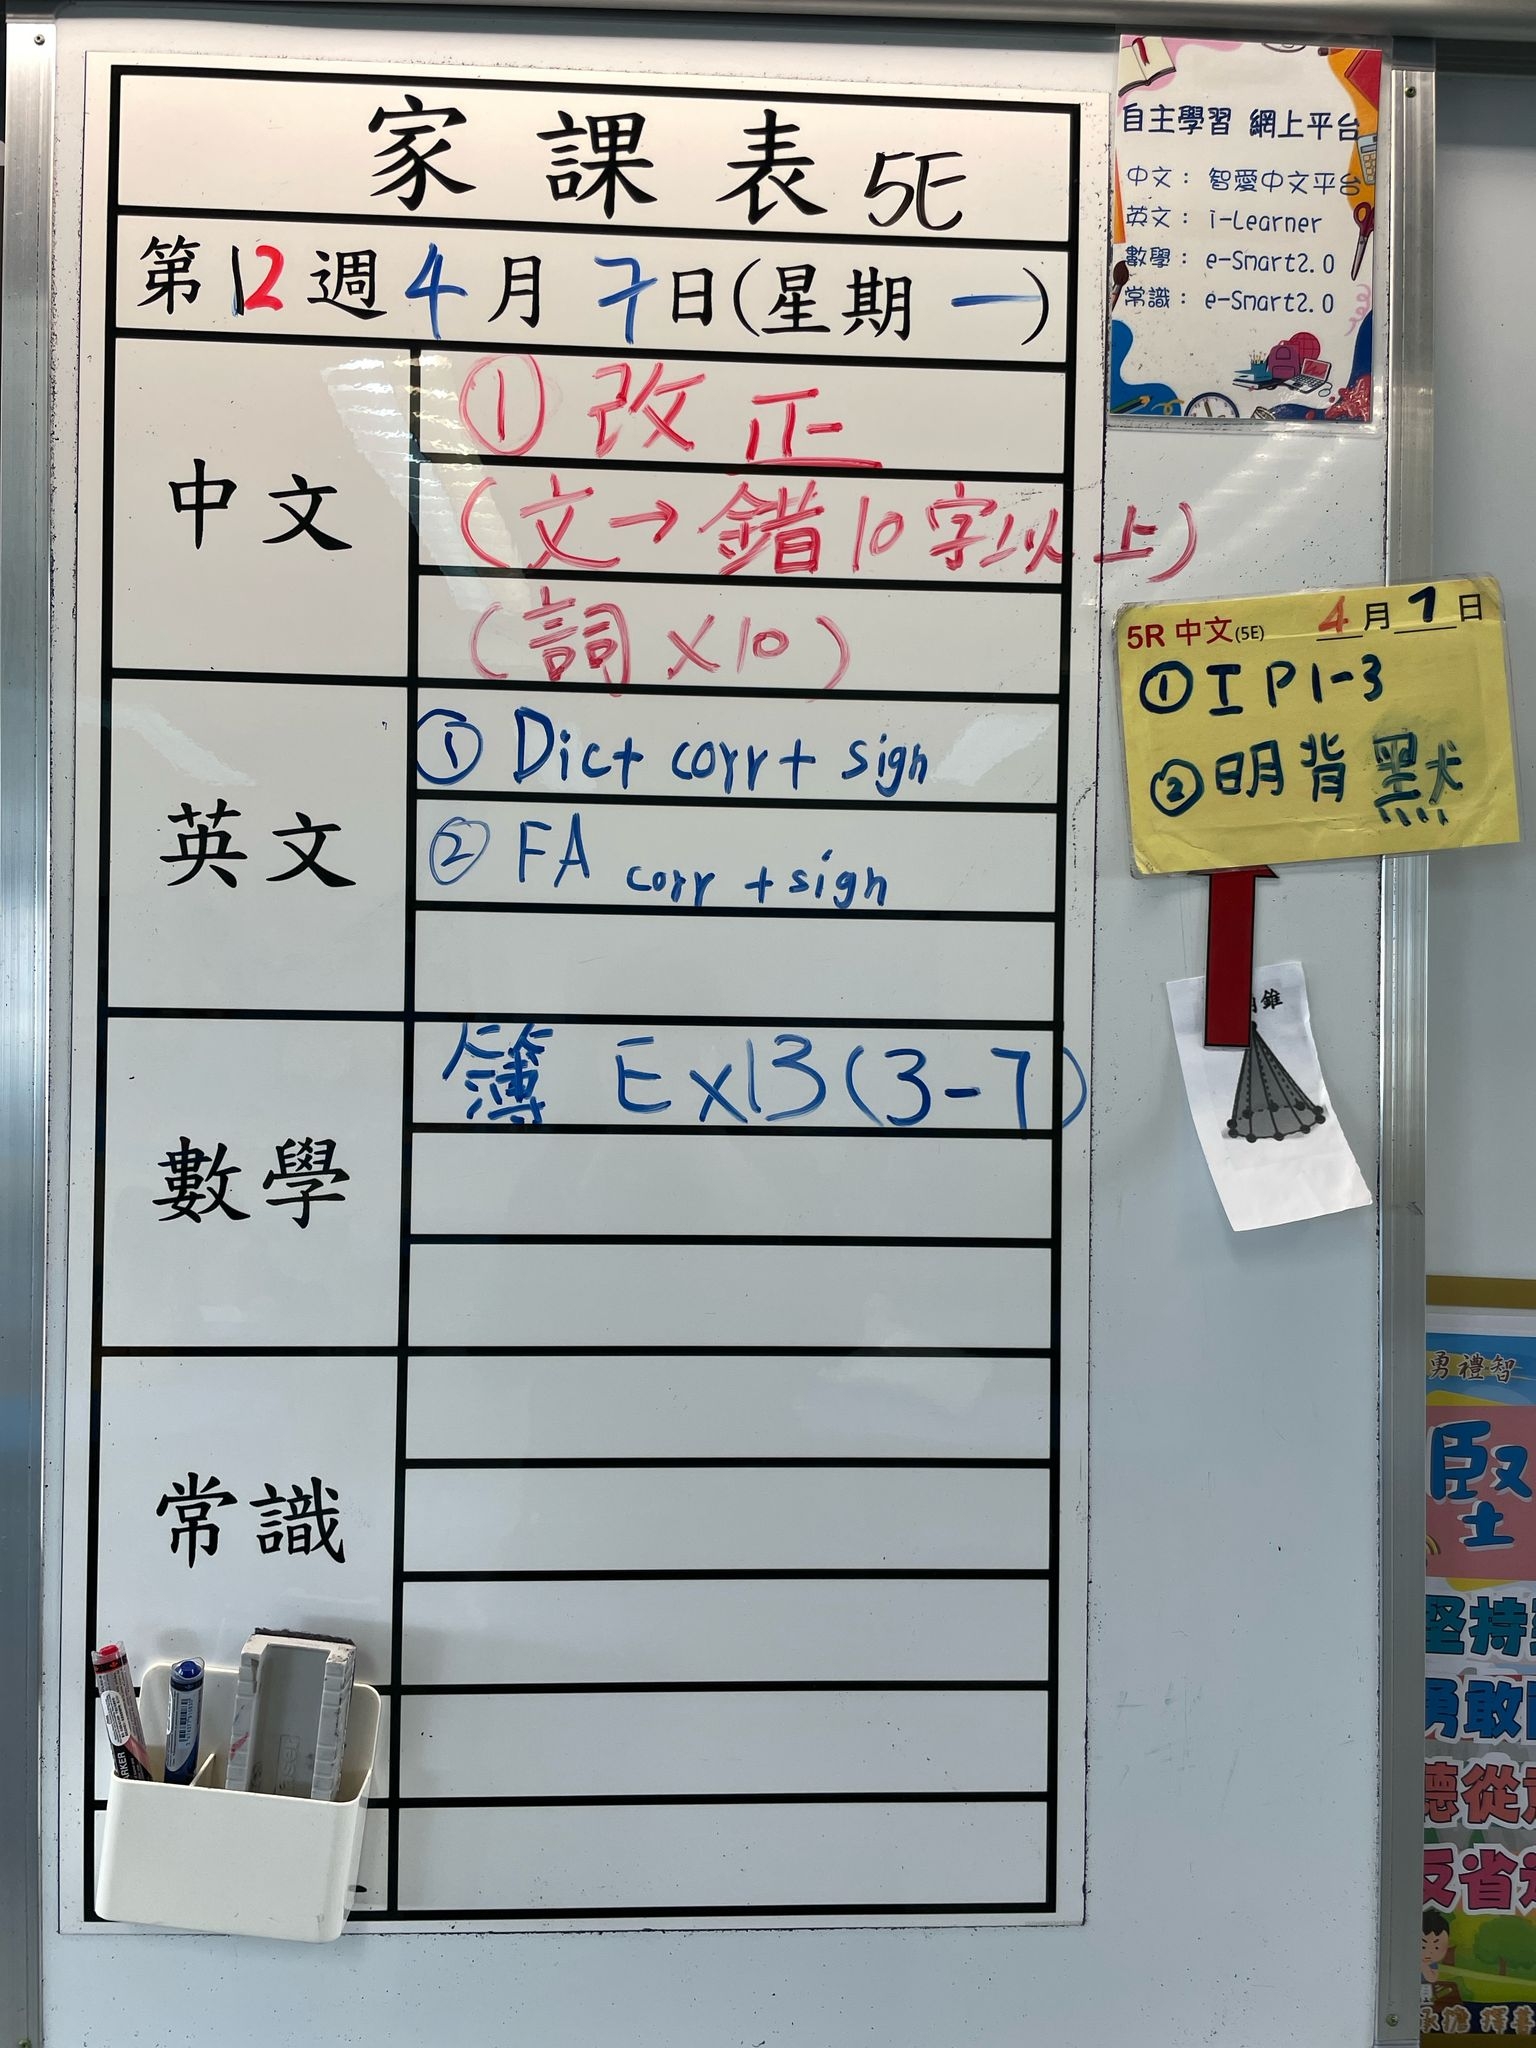 家課表 5E
第12週4月7日(星期一)
中文
① 改正
(文→錯10字以上)
(詞×10)
英文
① Dict corr + sign
② FA corr + sign
數學
簿 Ex13(3-7)
常識
自主學習 網上平台
中文：智愛中文平台
英文：i-Learner
數學：e-Smart2.0
常識：e-Smart2.0
5R 中文(5E) 4月7日
① 工 P1-3
② 明背默
錐
勇禮智
堅
堅持
勇敢
聽從
反省